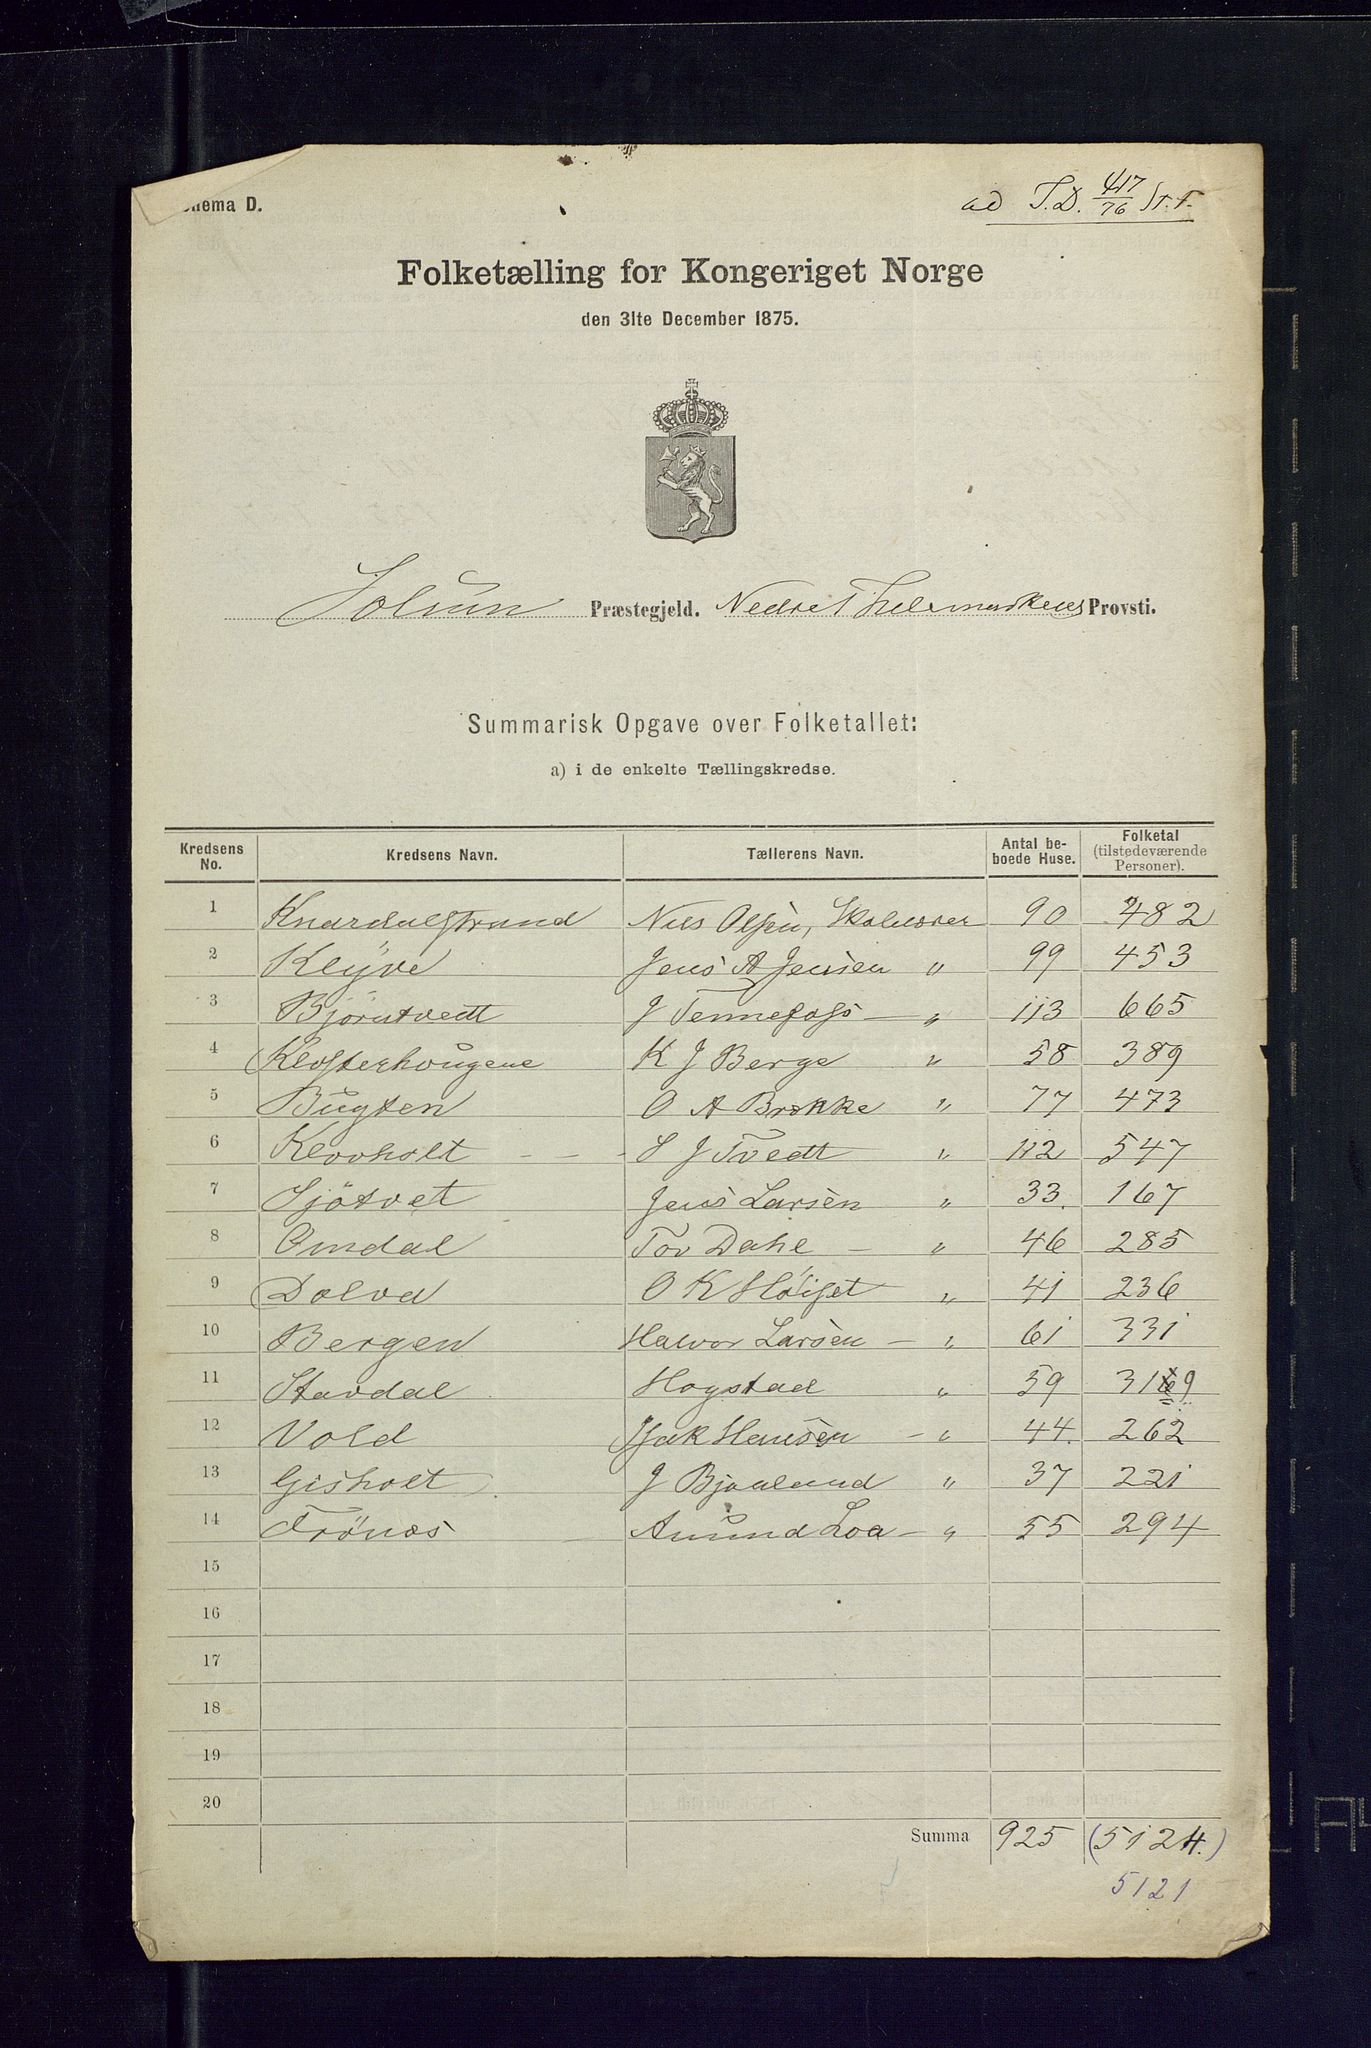 Schema D.
ad T.D. 417/76 St. T.
Folketælling for Kongeriget Norge
den 31te December 1875.
Solum Præstegjeld. Nedre Thelemarkens Provsti.
Summarisk Opgave over Folketallet:
a) i de enkelte Tællingskredse.
Kredsens No. Kredsens Navn. Tællerens Navn. Antal beboede Huse. Folketal (tilstedeværende Personer).
1 Knardalstrand Nils Olsen, Skolelærer 90 482
2 Klyve Jens A Jensen " 99 453
3 Björntvedt J Tennefoss — " 113 665
4 Klosterhougene K J Berge " 58 389
5 Bugten O A Brække " 77 473
6 Klovholt - - - S J Tvedt " 112 547
7 Sjötvet Jens Larsen " 33. 167
8 Omdal Tov Dahl — " 46 285
9 Dolva O K Höiset " 41 236
10 Bergen Halvor Larsen — " 61 331
11 Stavdal Hogstad " 59 3169
12 Vold Isak Hansen — " 44. 262
13 Gisholt J Bjaaland " 37 221
14 Trönæs Amund Loa — " 55 294
15
16
17
18
19
20
Summa 925 (5124.)
5121